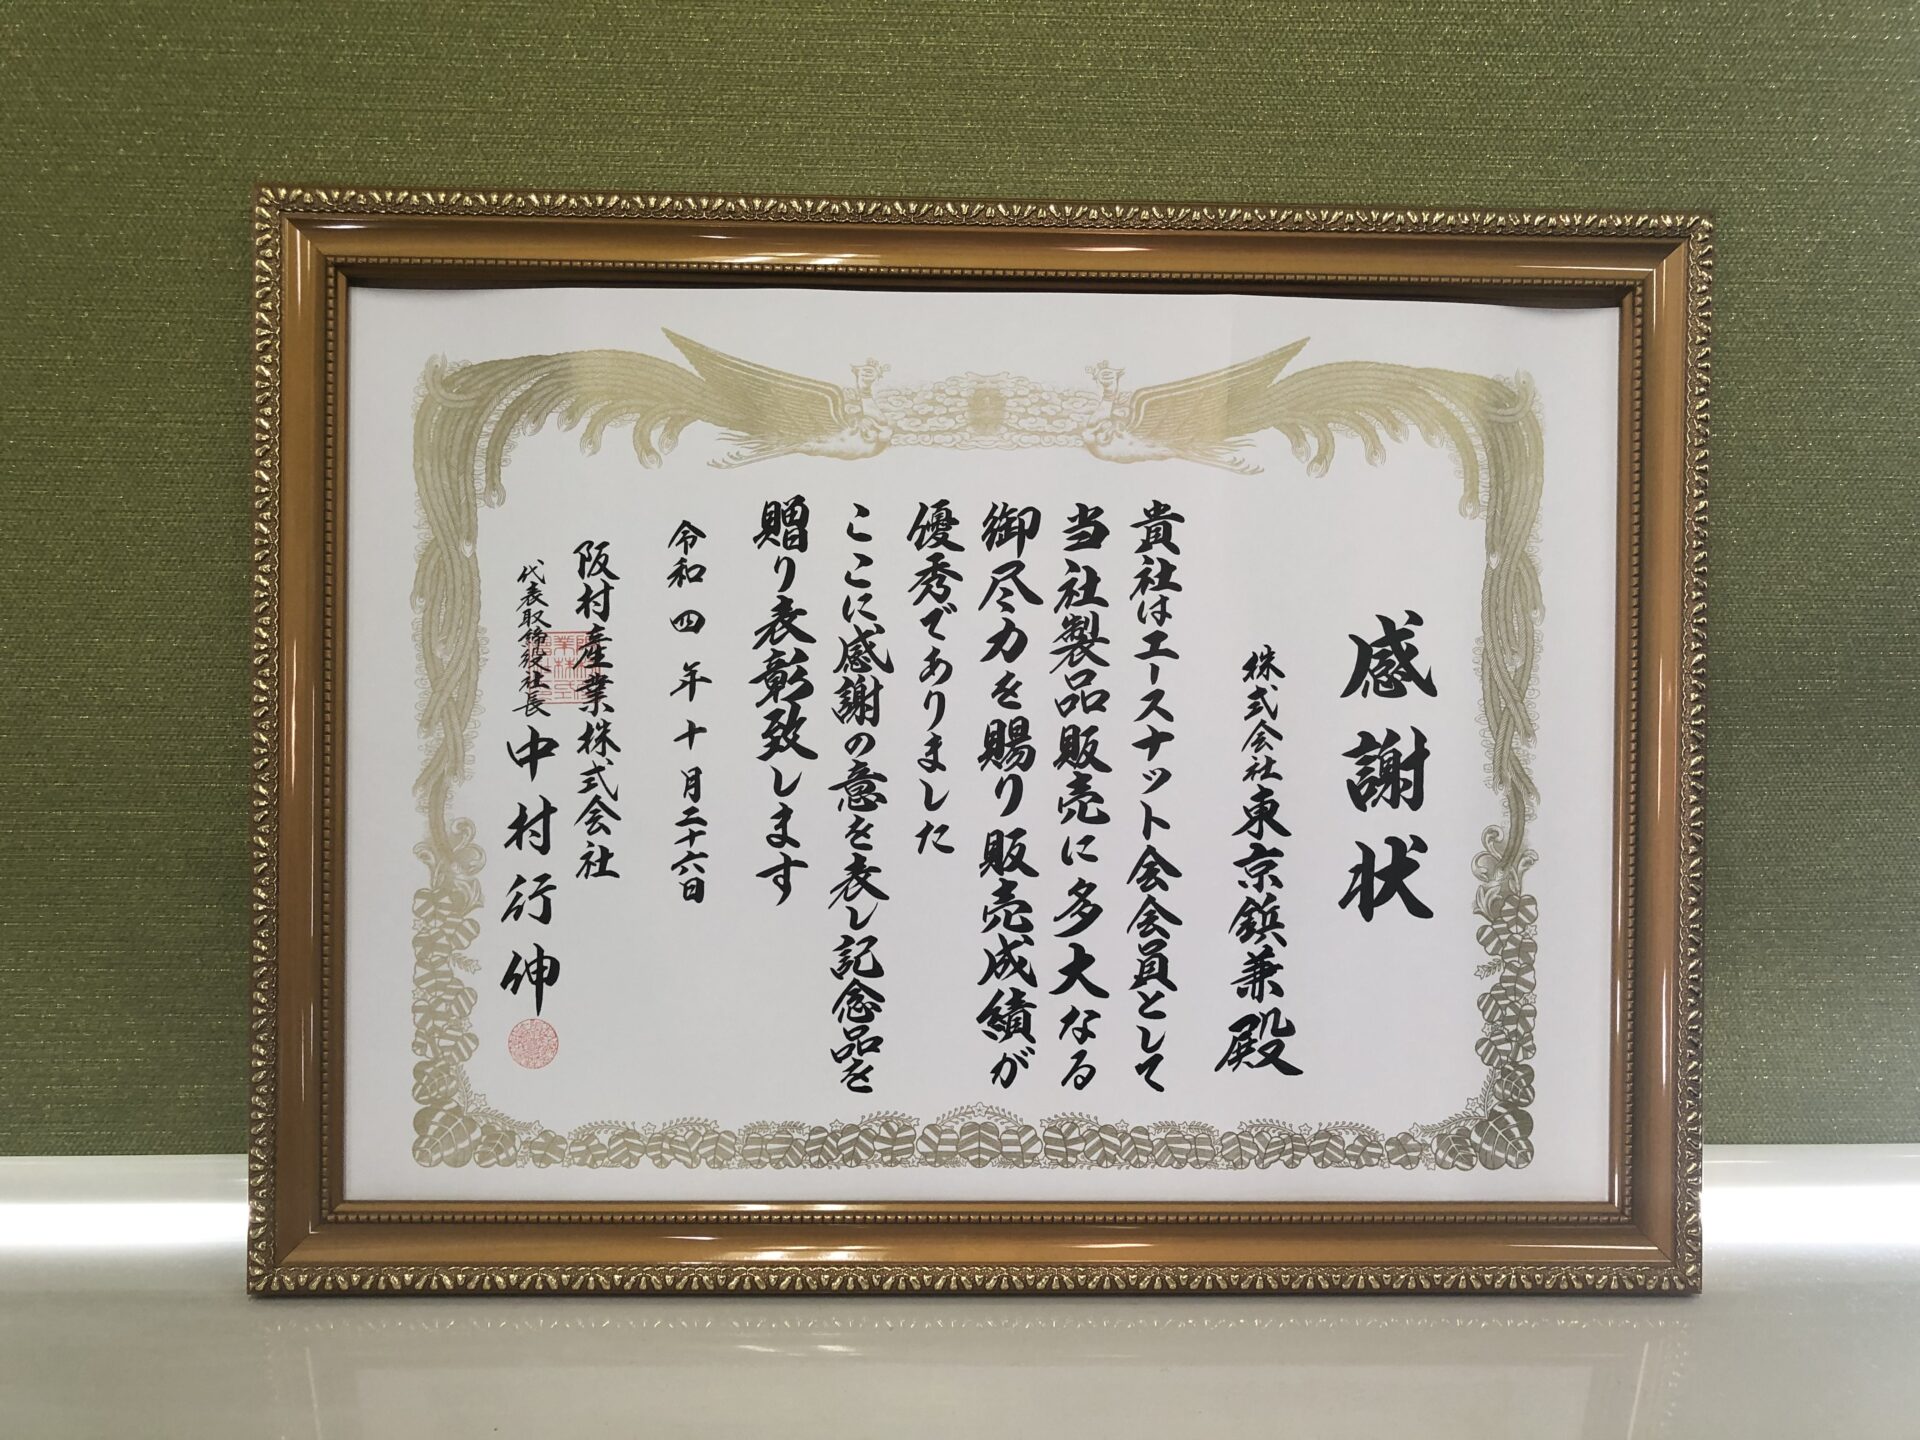 感謝状
株式会社東京鋲兼殿
貴社はエースナット会会員として
当社製品販売に多大なる
御尽力を賜り販売成績が
優秀でありました
ここに感謝の意を表し記念品を
贈り表彰致します
令和四年十月二十六日
阪村産業株式会社
代表取締役社長中村行伸